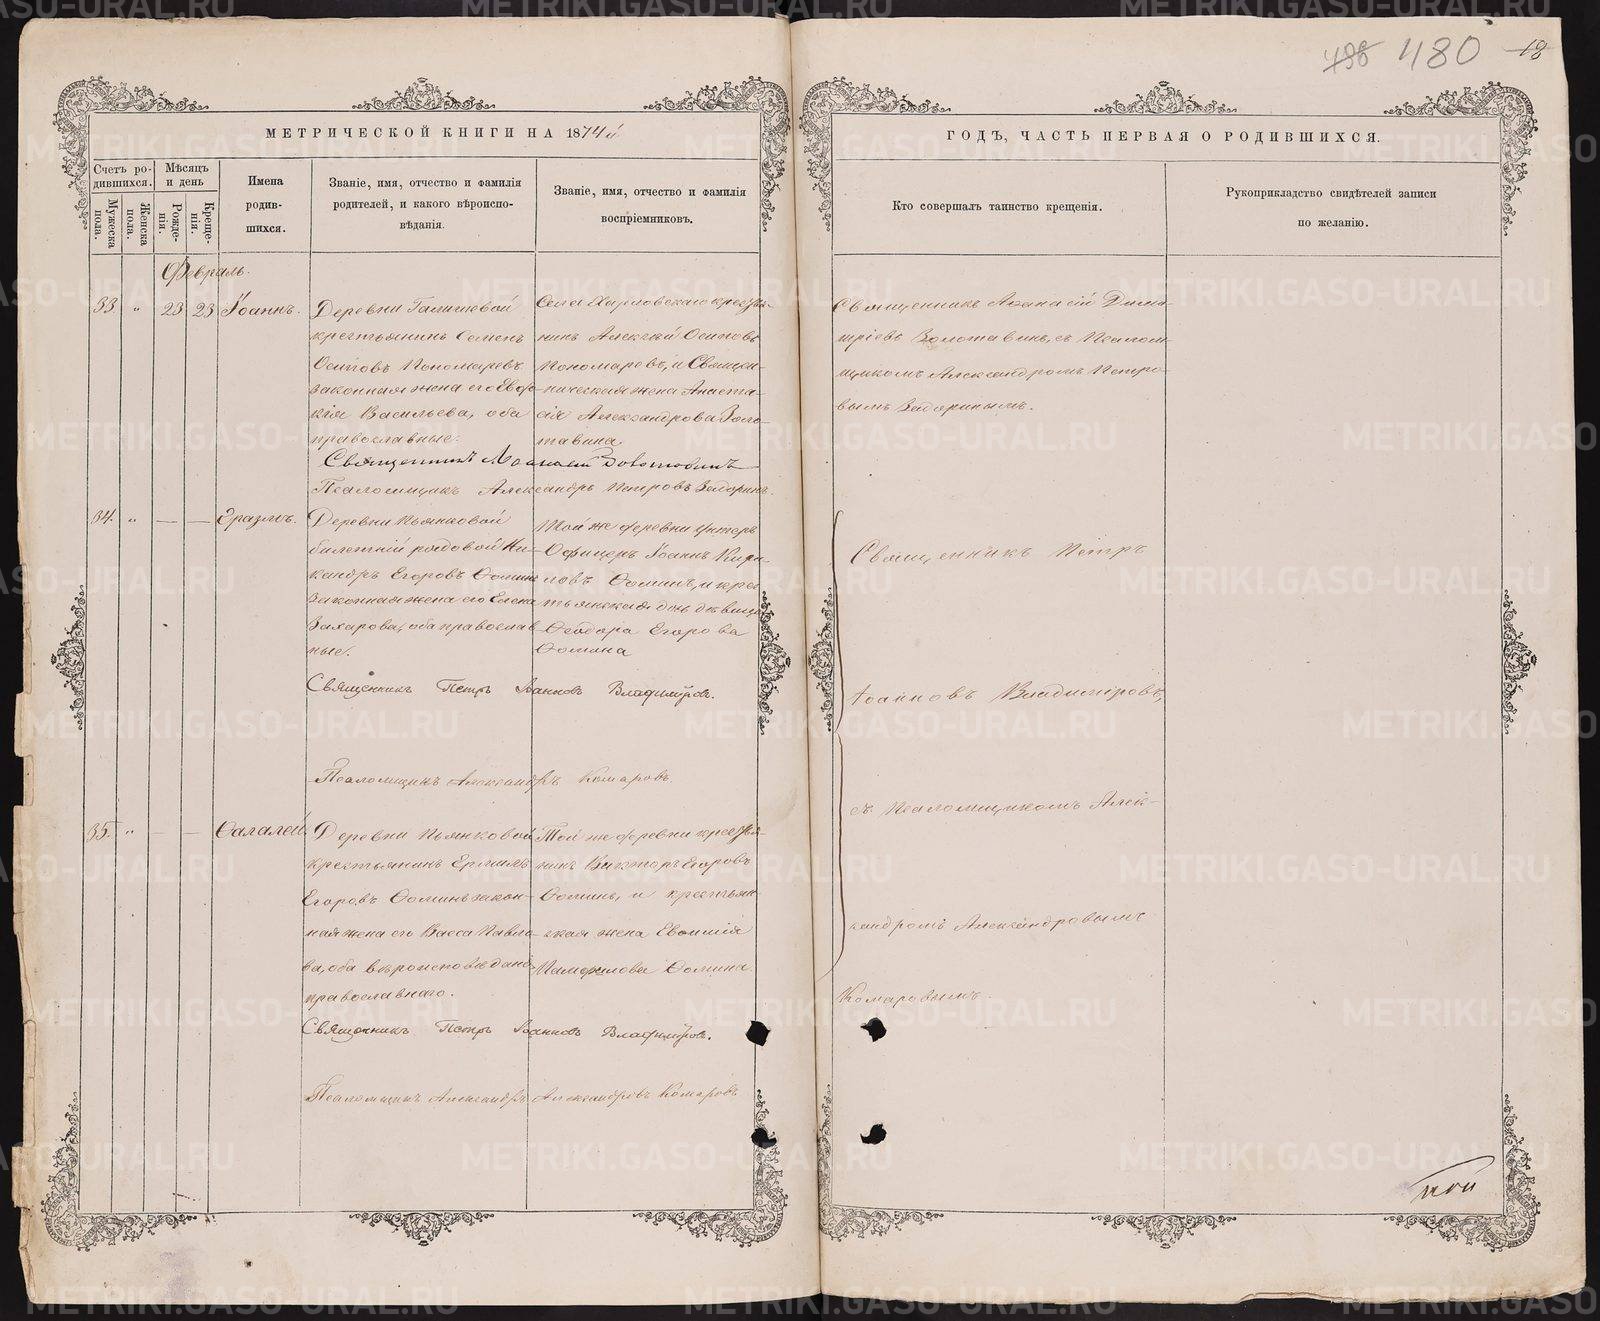 498 480 18
МЕТРИЧЕСКОЙ КНИГИ НА 1874й
ГОДЪ, ЧАСТЬ ПЕРВАЯ О РОДИВШИХСЯ.
Счетъ ро-
дившихся.
Мужеска
пола.
Женска
пола.
Мѣсяцъ
и день
Рожде-
нія.
Креще-
нія.
Имена
родив-
шихся.
Званіе, имя, отчество и фамилія
родителей, и какого вѣроиспо-
вѣданія.
Званіе, имя, отчество и фамилія
воспріемниковъ.
Кто совершалъ таинство крещенія.
Рукоприкладство свидѣтелей записи
по желанію.
Февраль.
33. „ 23 23 Іоаннъ.
Деревни Галишовой
крестьянинъ Семенъ
Осиповъ Пономаревъ
законная жена его Евдо-
кія Васильева, оба
православные.
Села Харловскаго крестья-
нинъ Алексѣй Осиповъ
Пономаревъ, и Священ-
ническая жена Анаста-
сія Александрова Золо-
тавина
Священникъ Аѳанасій Дими-
тріевъ Золотавинъ, съ Псалом-
щикомъ Александромъ Петро-
вымъ Задоринымъ.
Священникъ Аѳанасій Золотавинъ
Псаломщикъ Александръ Петровъ Задоринъ.
34. „ — — Еразмъ.
Деревни Пьянковой
билетній рядовой Ни-
кандръ Егоровъ Ѳоминъ
законная жена его Елена
Захарова, оба православ-
ные.
Той же деревни унтеръ
Офицеръ Іоаннъ Кири-
ловъ Ѳоминъ, и крес-
тьянская дочь дѣвица
Ѳеодора Егорова
Ѳомина
Священникъ Петръ
Іоанновъ Владиміровъ,
съ Псаломщикомъ Алек-
сандромъ Александровымъ
Комаровымъ.
Священникъ Петръ Іоанновъ Владиміровъ.
Псаломщикъ Александръ Комаровъ.
35. „ — — Ѳалалей.
Деревни Пьянковой
крестьянинъ
Егоровъ Ѳоминъ закон-
ная жена его Васса Павло-
ва, оба вѣроисповѣданія
православнаго.
Той же деревни крестья-
нинъ Викторъ Егоровъ
Ѳоминъ, и крестьян-
ская жена Евѳимія
Памфилова Ѳомина.
Священникъ Петръ Іоанновъ Владиміровъ.
Псаломщикъ Александръ Александровъ Комаровъ